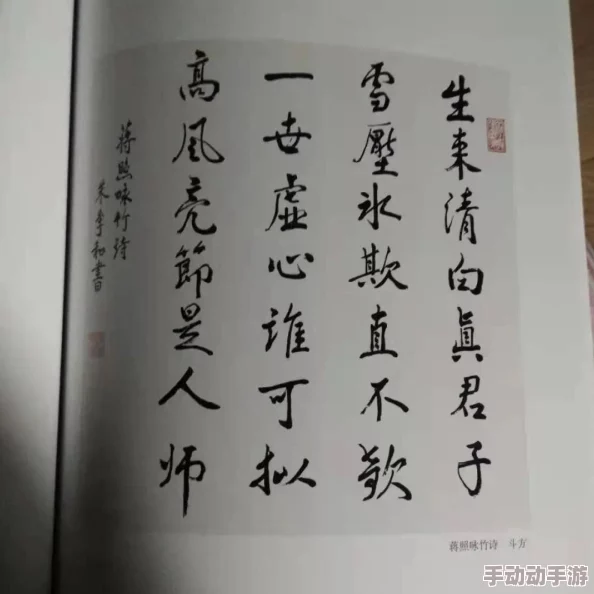 生来清白真君子
雪压氷欺直不欹
一世虚心谁可拟
高风亮節是人师
蒋照咏竹诗
朱季和書
蒋照咏竹诗 斗方
手动动手游